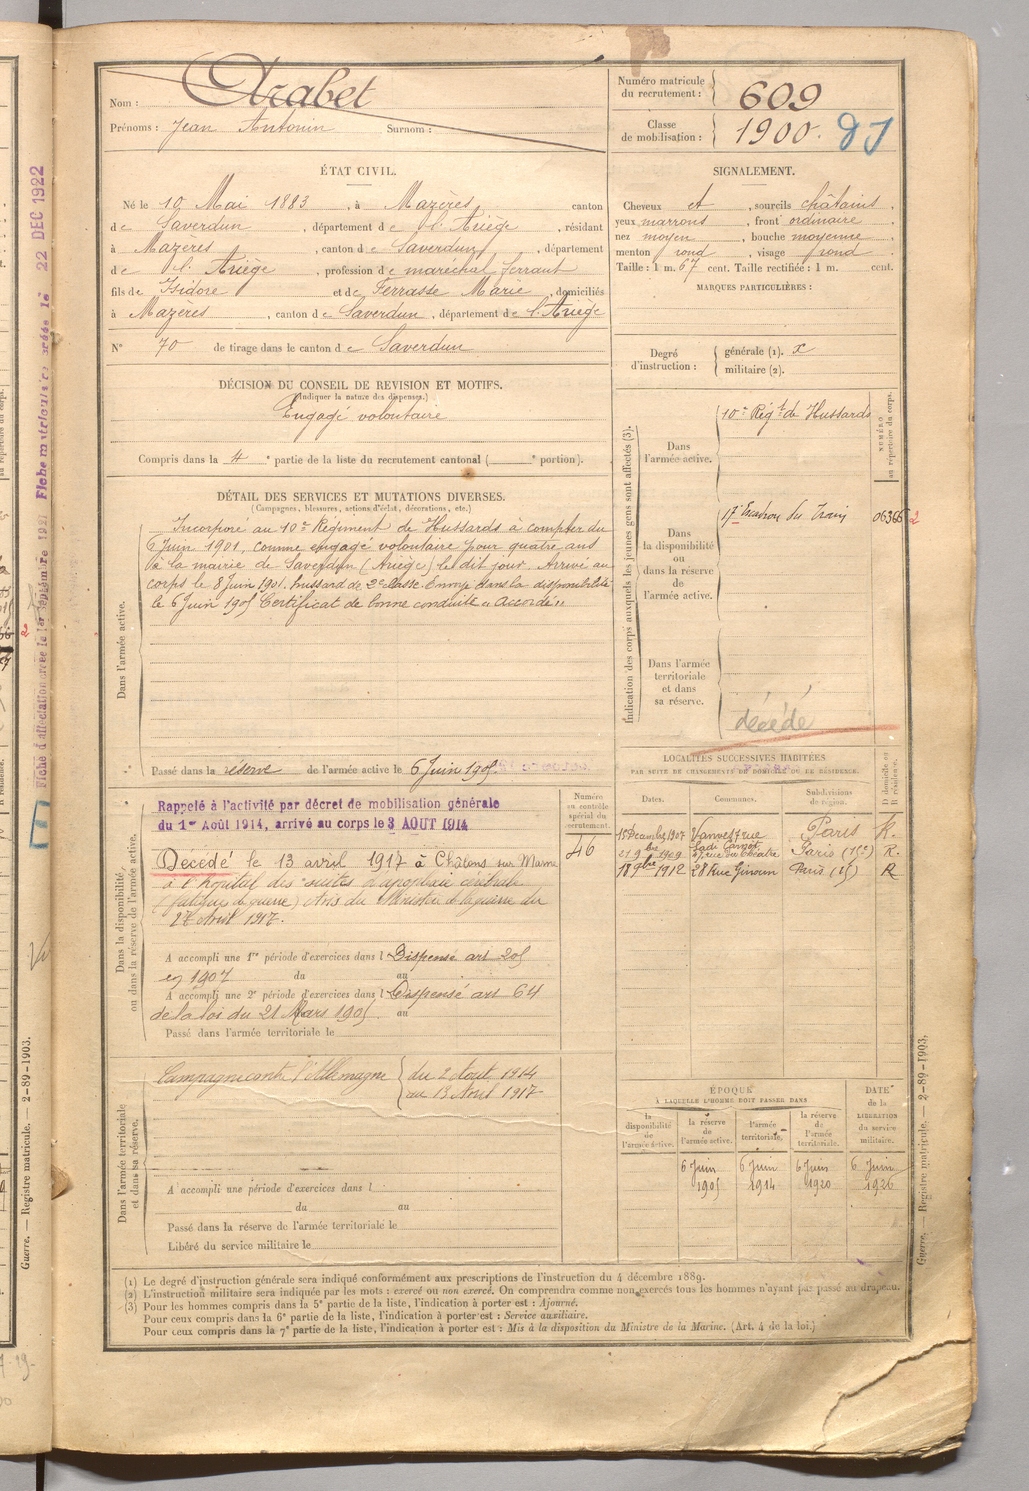 Nom : Arabet
Prénoms : Jean Antonin Surnom :
Numéro matricule du recrutement : 609
Classe de mobilisation : 1900.
ÉTAT CIVIL.
Né le 10 Mai 1883, à Mazères canton
de Saverdun, département de l'Ariège, résidant
à Mazères, canton de Saverdun, département
de l'Ariège, profession de maréchal ferrant
fils de Isidore et de Ferrasse Marie, domiciliés
à Mazères, canton de Saverdun, département de l'Ariège
N° 70 de tirage dans le canton de Saverdun
SIGNALEMENT.
Cheveux et, sourcils châtains,
yeux marrons, front ordinaire
nez moyen, bouche moyenne,
menton rond, visage rond
Taille : 1 m. 67 cent. Taille rectifiée : 1 m. cent.
MARQUES PARTICULIÈRES :
Degré d'instruction :
générale (1). x
militaire (2).
DÉCISION DU CONSEIL DE REVISION ET MOTIFS.
(Indiquer la nature des dispenses.)
Engagé volontaire
Compris dans la 4e partie de la liste du recrutement cantonal ( e portion).
DÉTAIL DES SERVICES ET MUTATIONS DIVERSES.
(Campagnes, blessures, actions d'éclat, décorations, etc.)
Dans l'armée active.
Incorporé au 10e Régiment de Hussards à compter du
6 Juin 1901, comme engagé volontaire pour quatre ans
à la mairie de Saverdun (Ariège) le dit jour. Arrivé au
corps le 8 Juin 1901. hussard de 2e classe. Envoyé dans la disponibilité
le 6 Juin 1905 Certificat de bonne conduite "Accordé"
Passé dans la réserve de l'armée active le 6 Juin 1905.
Indication des corps auxquels les jeunes gens sont affectés (3).
NUMÉRO au répertoire du corps.
Dans l'armée active.
10e Régt de Hussards
Dans la disponibilité ou dans la réserve de l'armée active.
17e Escadron du Train
06366
2
Dans l'armée territoriale et dans sa réserve.
décédé
Dans la disponibilité, ou dans la réserve de l'armée active.
Rappelé à l'activité par décret de mobilisation générale
du 1er Août 1914, arrivé au corps le 3 AOUT 1914
Décédé le 13 avril 1917 à Châlons sur Marne
à l'hôpital des suites d'apoplexie cérébrale
(fatigues de guerre) Avis du Ministre de la guerre du
Avril 1917.
A accompli une 1re période d'exercices dans l Dispensé art 205
en 1907 du au
A accompli une 2e période d'exercices dans l Dispensé art 64
de la loi du 21 Mars 1905. au
Passé dans l'armée territoriale le
Numéro au contrôle spécial du recrutement.
46
LOCALITÉS SUCCESSIVES HABITÉES
PAR SUITE DE CHANGEMENTS DE DOMICILE OU DE RÉSIDENCE.
Dates. Communes. Subdivisions de région. D domicile ou R résidence.
15 Décembre 1907 Vanves 7 rue Sadi Carnot Paris R.
21 9bre 1909 rue du Théâtre Paris (15e) R.
18 9bre 1912 28 Rue Ginoux Paris (15) R
Dans l'armée territoriale et dans sa réserve.
Campagne contre l'Allemagne { du 2 Aout 1914
au 13 Avril 1917
A accompli une période d'exercices dans l
du au
Passé dans la réserve de l'armée territoriale le
Libéré du service militaire le
ÉPOQUE
À LAQUELLE L'HOMME DOIT PASSER DANS
la disponibilité de l'armée active.
la réserve de l'armée active.
l'armée territoriale.
la réserve de l'armée territoriale.
DATE de la LIBÉRATION du service militaire.
6 Juin 1905
6 Juin 1914
6 Juin 1920
6 Juin 1926
(1) Le degré d'instruction générale sera indiqué conformément aux prescriptions de l'instruction du 4 décembre 1889.
(2) L'instruction militaire sera indiquée par les mots : exercé ou non exercé. On comprendra comme non exercés tous les hommes n'ayant pas passé au drapeau.
(3) Pour les hommes compris dans la 5e partie de la liste, l'indication à porter est : Ajourné.
Pour ceux compris dans la 6e partie de la liste, l'indication à porter est : Service auxiliaire.
Pour ceux compris dans la 7e partie de la liste, l'indication à porter est : Mis à la disposition du Ministre de la Marine. (Art. 4 de la loi.)
Guerre. — Registre matricule. — 2-89-1903.
Guerre. — Registre matricule. — 2-89-1903.
22 DEC 1922